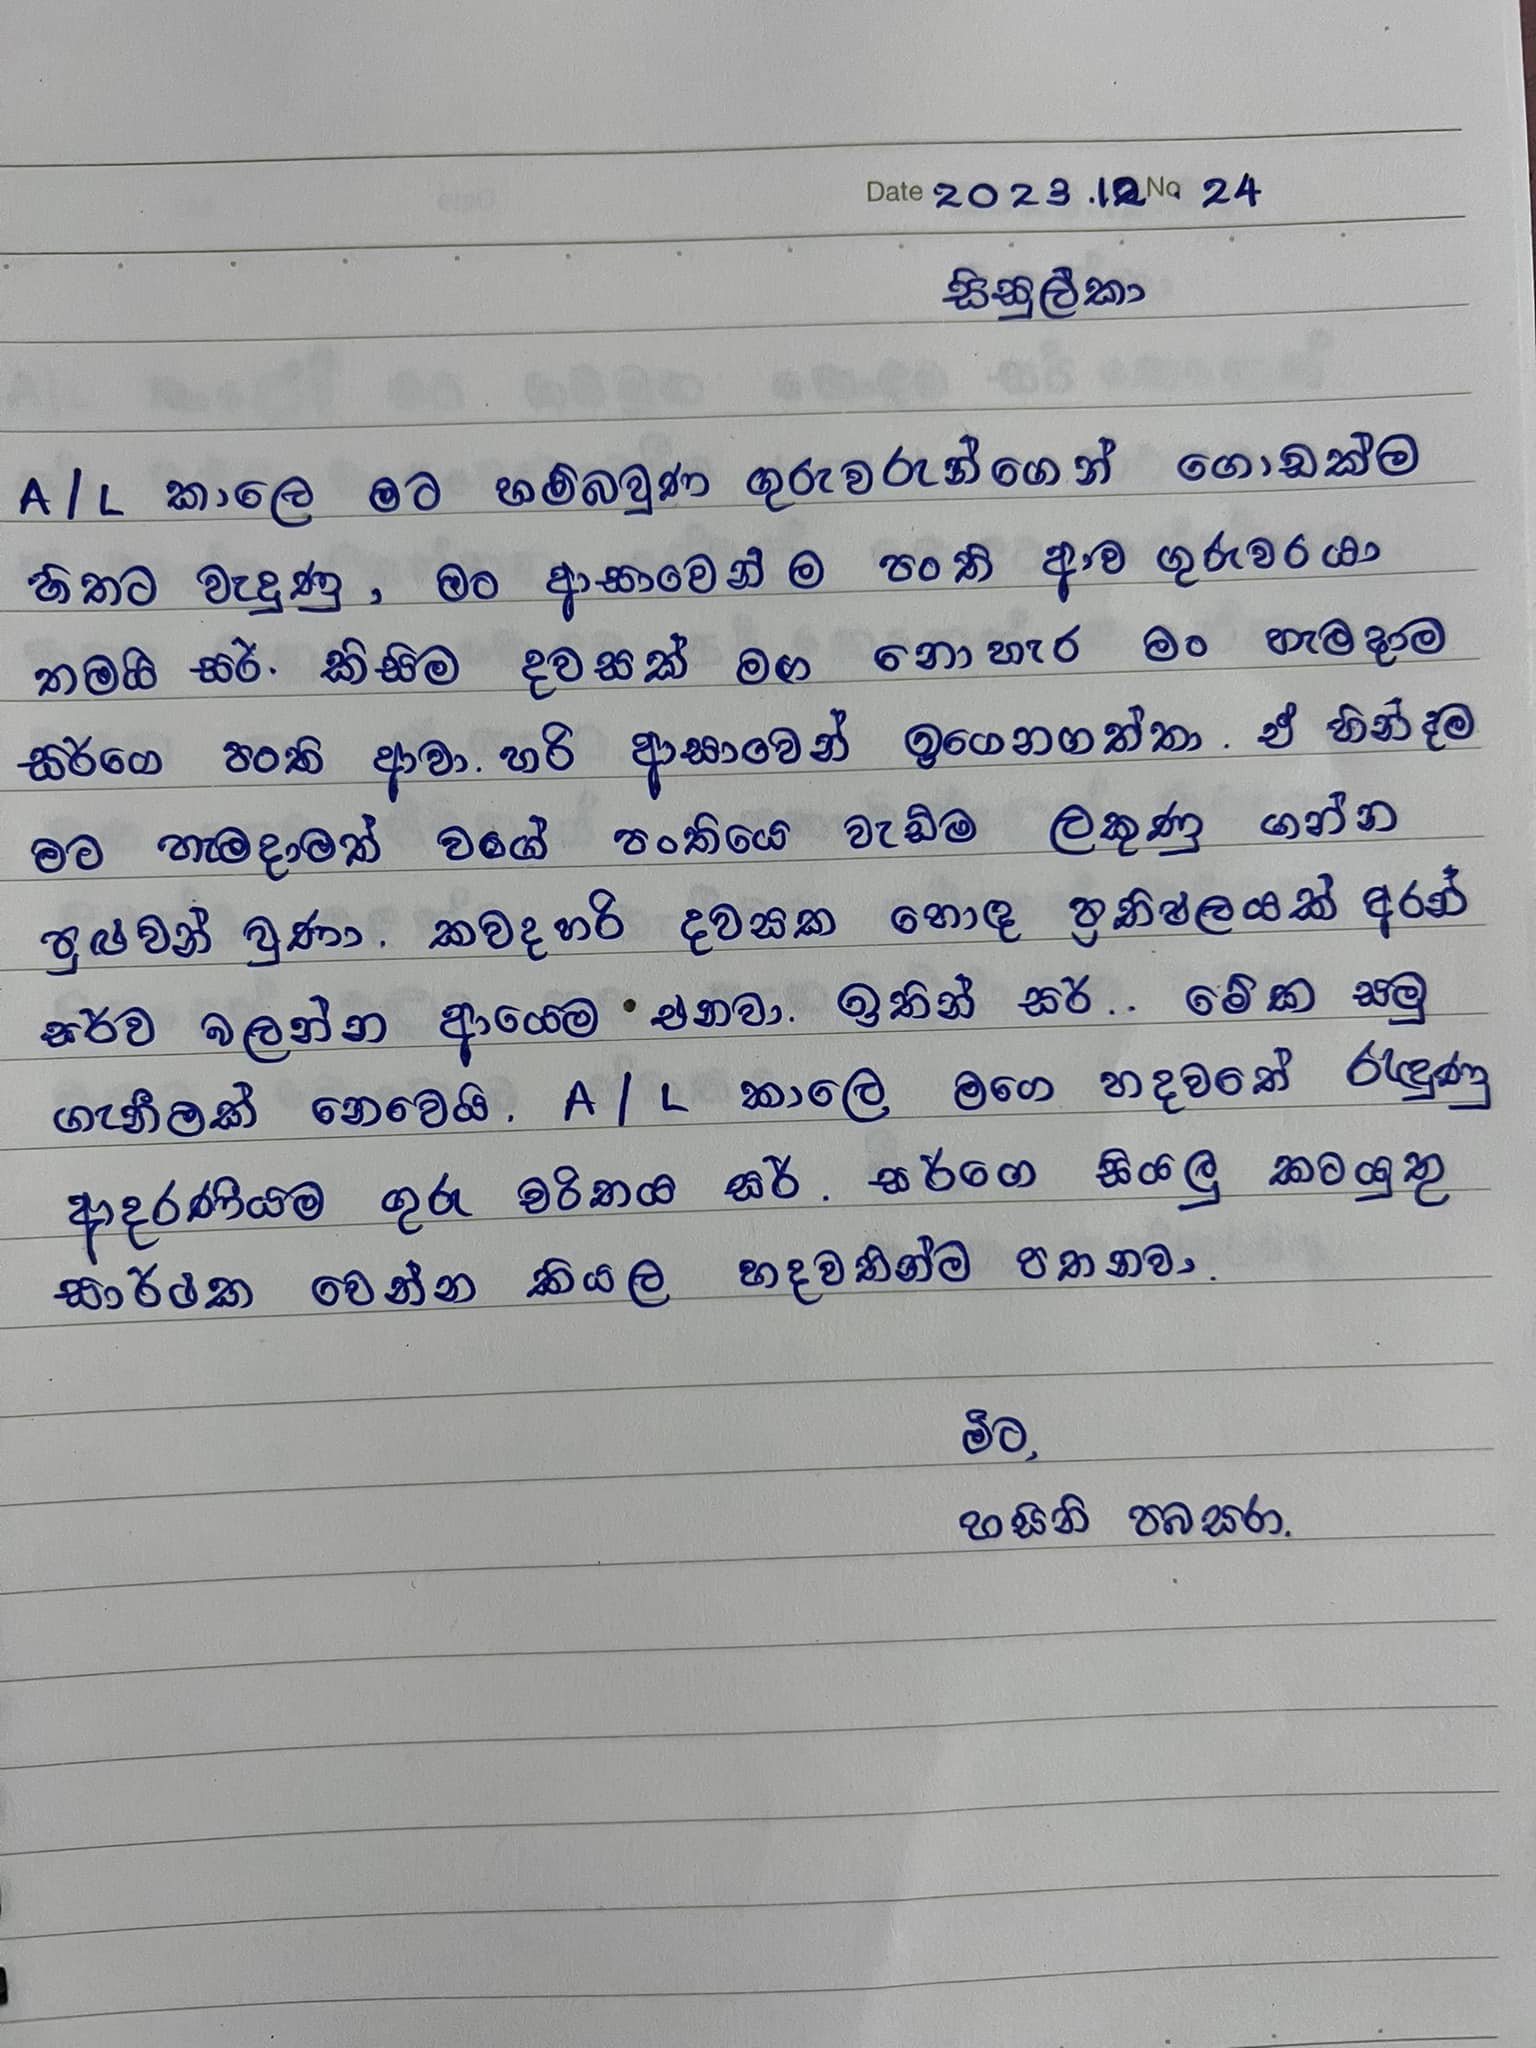 Date 2023.12 No. 24
සිසුල්කා
A/L කාලෙ මට හම්බවුණ ගුරුවරුන්ගෙන් ගොඩක්ම
හිතට වැදුණු, මං ආසාවෙන්ම පංති ආව ගුරුවරයා
තමයි සර්. කිසිම දවසක් මග නොහැර මං හැමදාම
සර්ගෙ පංති ආවා. හරි ආසාවෙන් ඉගෙනගත්තා. ඒ හින්දම
මට හැමදාමත් වගේ පංතියෙ වැඩිම ලකුණු ගන්න
පුළුවන් වුණා. කවදහරි දවසක හොඳ ප්‍රතිඵලයක් අරන්
සර්ව බලන්න ආයෙම එනවා. ඉතින් සර්.. මේක සමු
ගැනීමක් නෙවෙයි. A/L කාලෙ මගෙ හදවතේ රැඳුණු
ආදරණීයම ගුරු චරිතය සර්. සර්ගෙ සියලු කටයුතු
සාර්ථක වෙන්න කියල හදවතින්ම පතනවා.
මීට,
හසිනි පබසරා.